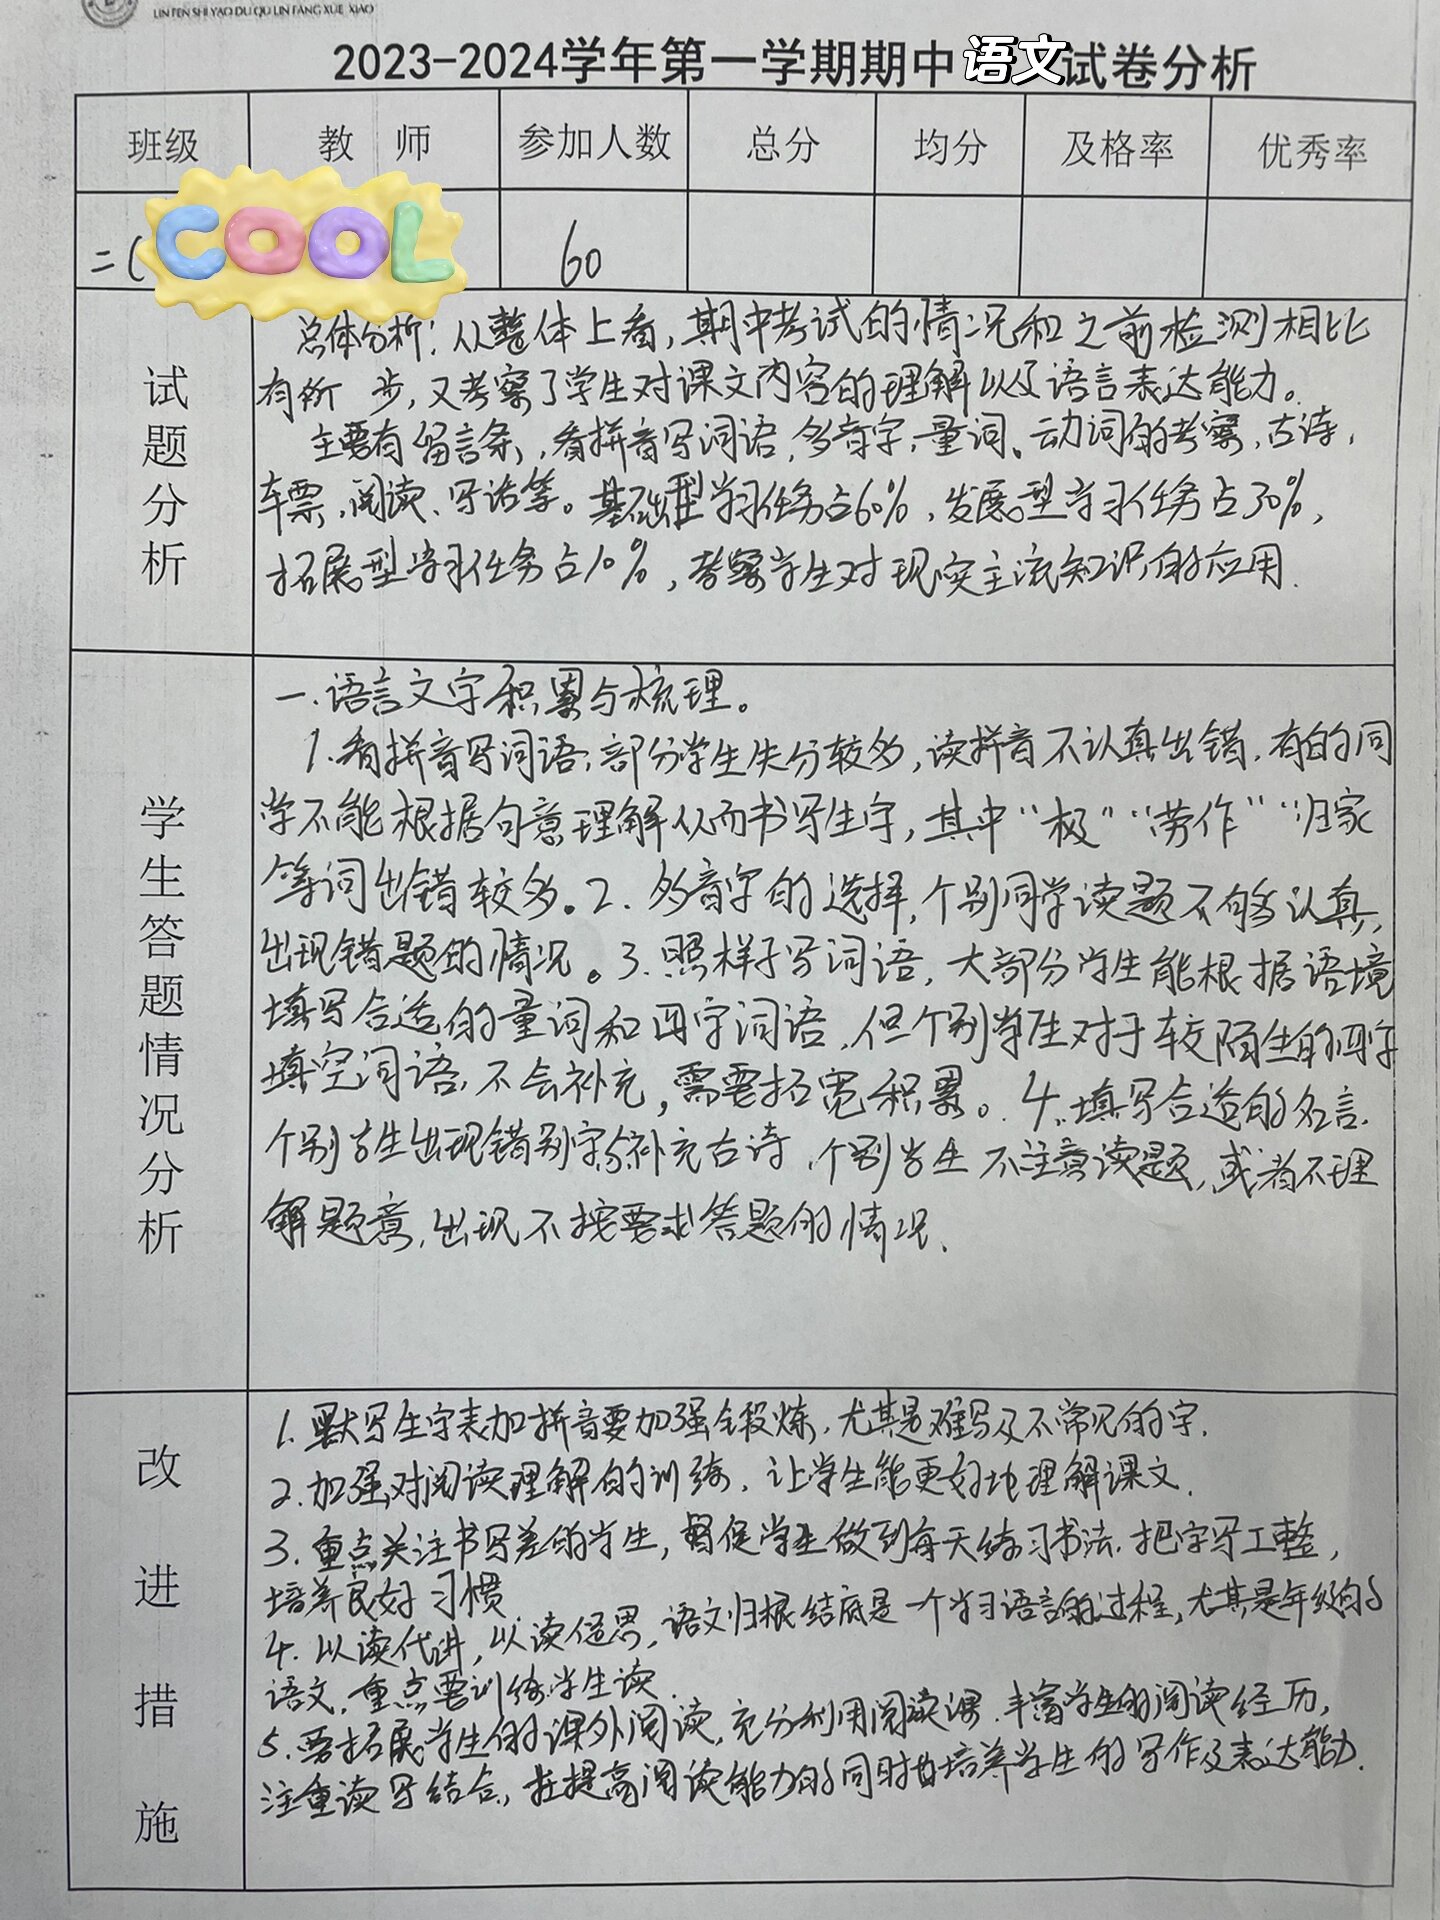 LIN FEN SHI YAO DU QU LIN FANG XUE XIAO
2023-2024学年第一学期期中语文试卷分析
班级 教师 参加人数 总分 均分 及格率 优秀率
二( COOL 60
试题分析
总体分析：从整体上看，期中考试的情况和之前检测相比
有所 步，又考察了学生对课文内容的理解以及语言表达能力。
主要有留言条，看拼音写词语，多音字，量词、动词的考察，古诗，
车票，阅读、写话等。基础型学习任务占60%，发展型学习任务占30%，
拓展型学习任务占10%，考察学生对现实主流知识的应用.
学生答题情况分析
一.语言文字积累与梳理。
1.看拼音写词语，部分学生失分较多，读拼音不认真出错，有的同
学不能根据句意理解从而书写生字，其中“极”“劳作”“归家
等词出错较多。2.多音字的选择，个别同学读题不够认真，
出现错题的情况。3.照样子写词语，大部分学生能根据语境
填写合适的量词和四字词语，但个别学生对于较陌生的四字
填空词语，不会补充，需要拓宽积累。4.填写合适的名言，
个别学生出现错别字与补充古诗，个别学生不注意读题，或者不理
解题意，出现不按要求答题的情况.
改进措施
1.默写生字表加拼音要加强锻炼，尤其是难写及不常见的字.
2.加强对阅读理解的训练，让学生能更好地理解课文.
3.重点关注书写差的学生，督促学生做到每天练习书法，把字写工整，
培养良好习惯
4.以读代讲，以读促思，语文归根结底是一个学习语言的过程，尤其是年级的
语文，重点要训练学生读.
5.要拓展学生的课外阅读，充分利用阅读课，丰富学生的阅读经历，
注重读写结合，在提高阅读能力的同时培养学生的写作及表达能力.